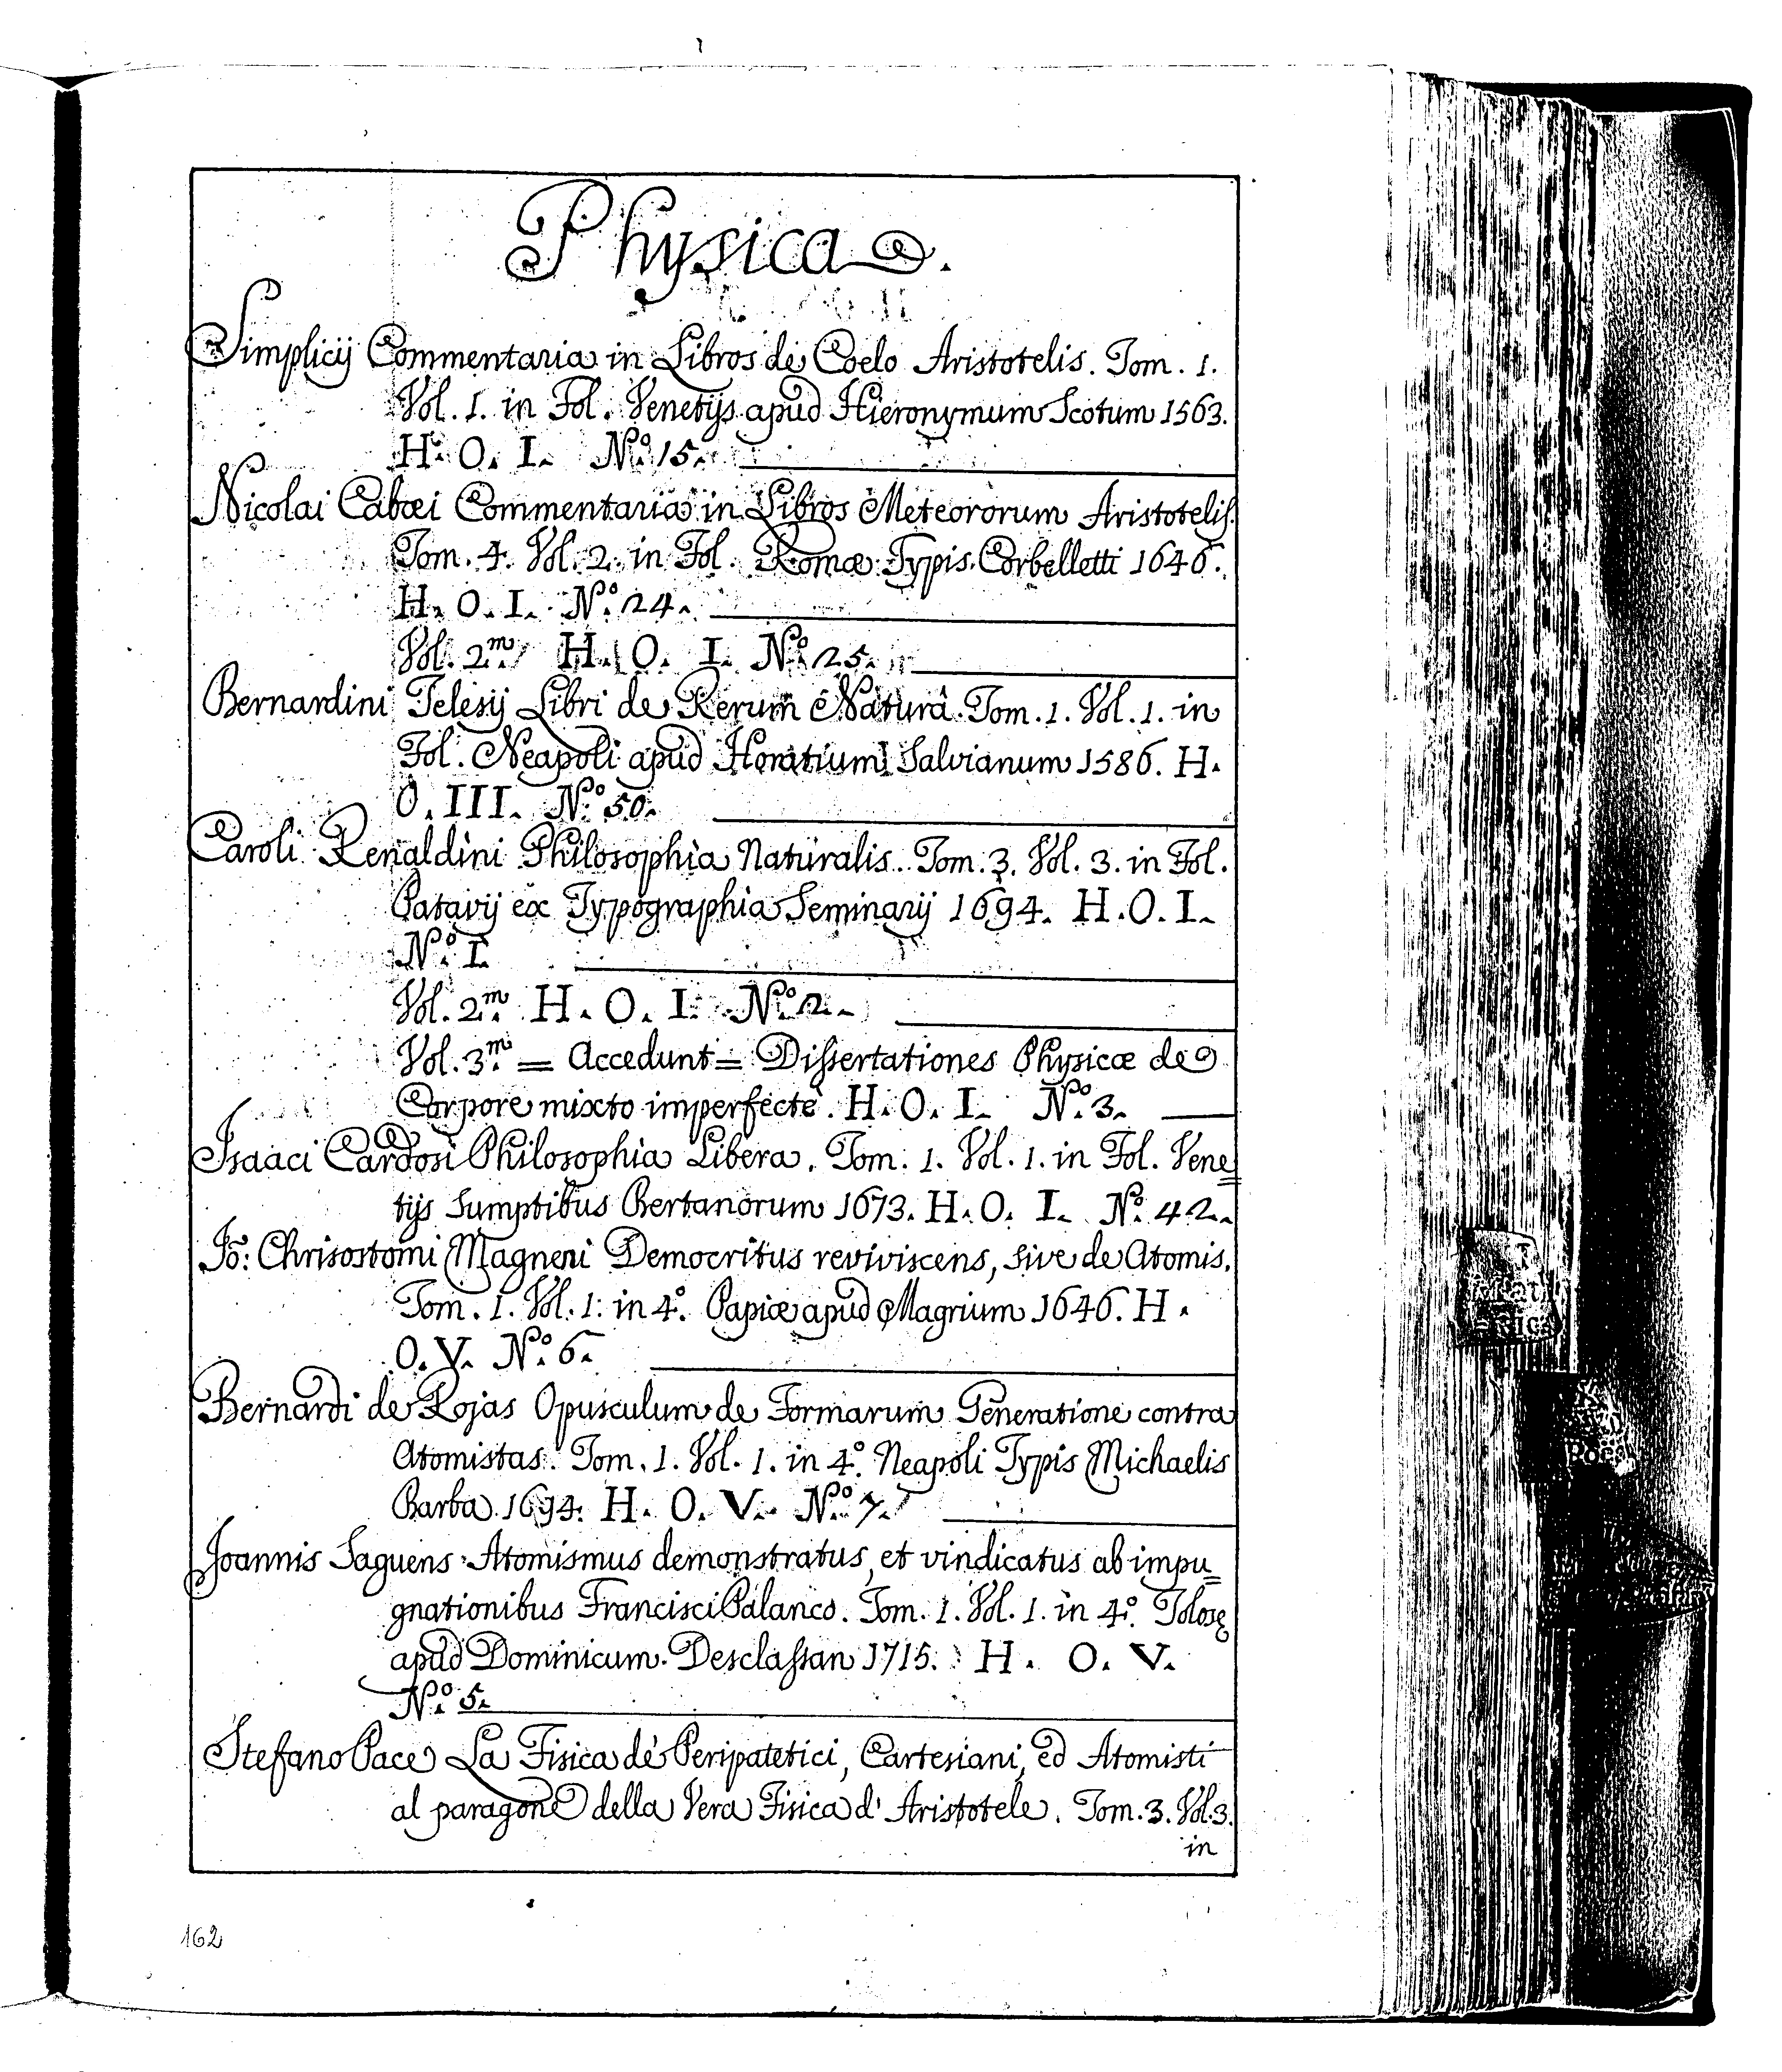 Physica.
Simplicij Commentaria in Libros de Coelo Aristotelis. Tom. 1.
Vol. 1. in Fol. Venetijs apud Hieronymum Scotum 1563.
H. O. I. N.º 15.
Nicolai Cabœi Commentaria in Libros Meteororum Aristotelis.
Tom. 4. Vol. 2. in Fol. Romæ Typis Corbelletti 1646.
H. O. I. N.º 24.
Vol. 2.m H. O. I. N.º 25.
Bernardini Telesij Libri de Rerum Naturâ. Tom. 1. Vol. 1. in
Fol. Neapoli apud Horatium Salvianum 1586. H.
O. III. N.º 50.
Caroli Renaldini Philosophia Naturalis. Tom. 3. Vol. 3. in Fol.
Patavij ex Typographia Seminarij 1694. H. O. I.
N.º I.
Vol. 2.m H. O. I. N.º 2.
Vol. 3.m = Accedunt = Dissertationes Physicæ de
Corpore mixto imperfecte. H. O. I. N.º 3.
Isaaci Cardosi Philosophia Libera. Tom. 1. Vol. 1. in Fol. Vene=
tijs Sumptibus Bertanorum 1673. H. O. I. N.º 42.
Jo: Chrisostomi Magneni Democritus reviviscens, sive de Atomis.
Tom. 1. Vol. 1. in 4.º Papiæ apud Magrium 1646. H.
O. V. N.º 6.
Bernardi de Rojas Opusculum de Formarum Generatione contra
Atomistas. Tom. 1. Vol. 1. in 4.º Neapoli Typis Michaelis
Barba 1694. H. O. V. N.º 7.
Joannis Saguens Atomismus demonstratus, et vindicatus ab impu=
gnationibus Francisci Palanco. Tom. 1. Vol. 1. in 4.º Tolosę
apud Dominicum Desclassan 1715. H. O. V.
N.º 5.
Stefano Pace La Fisica de' Peripatetici, Cartesiani, ed Atomisti
al paragone della Vera Fisica d' Aristotele. Tom. 3. Vol. 3.
in
162